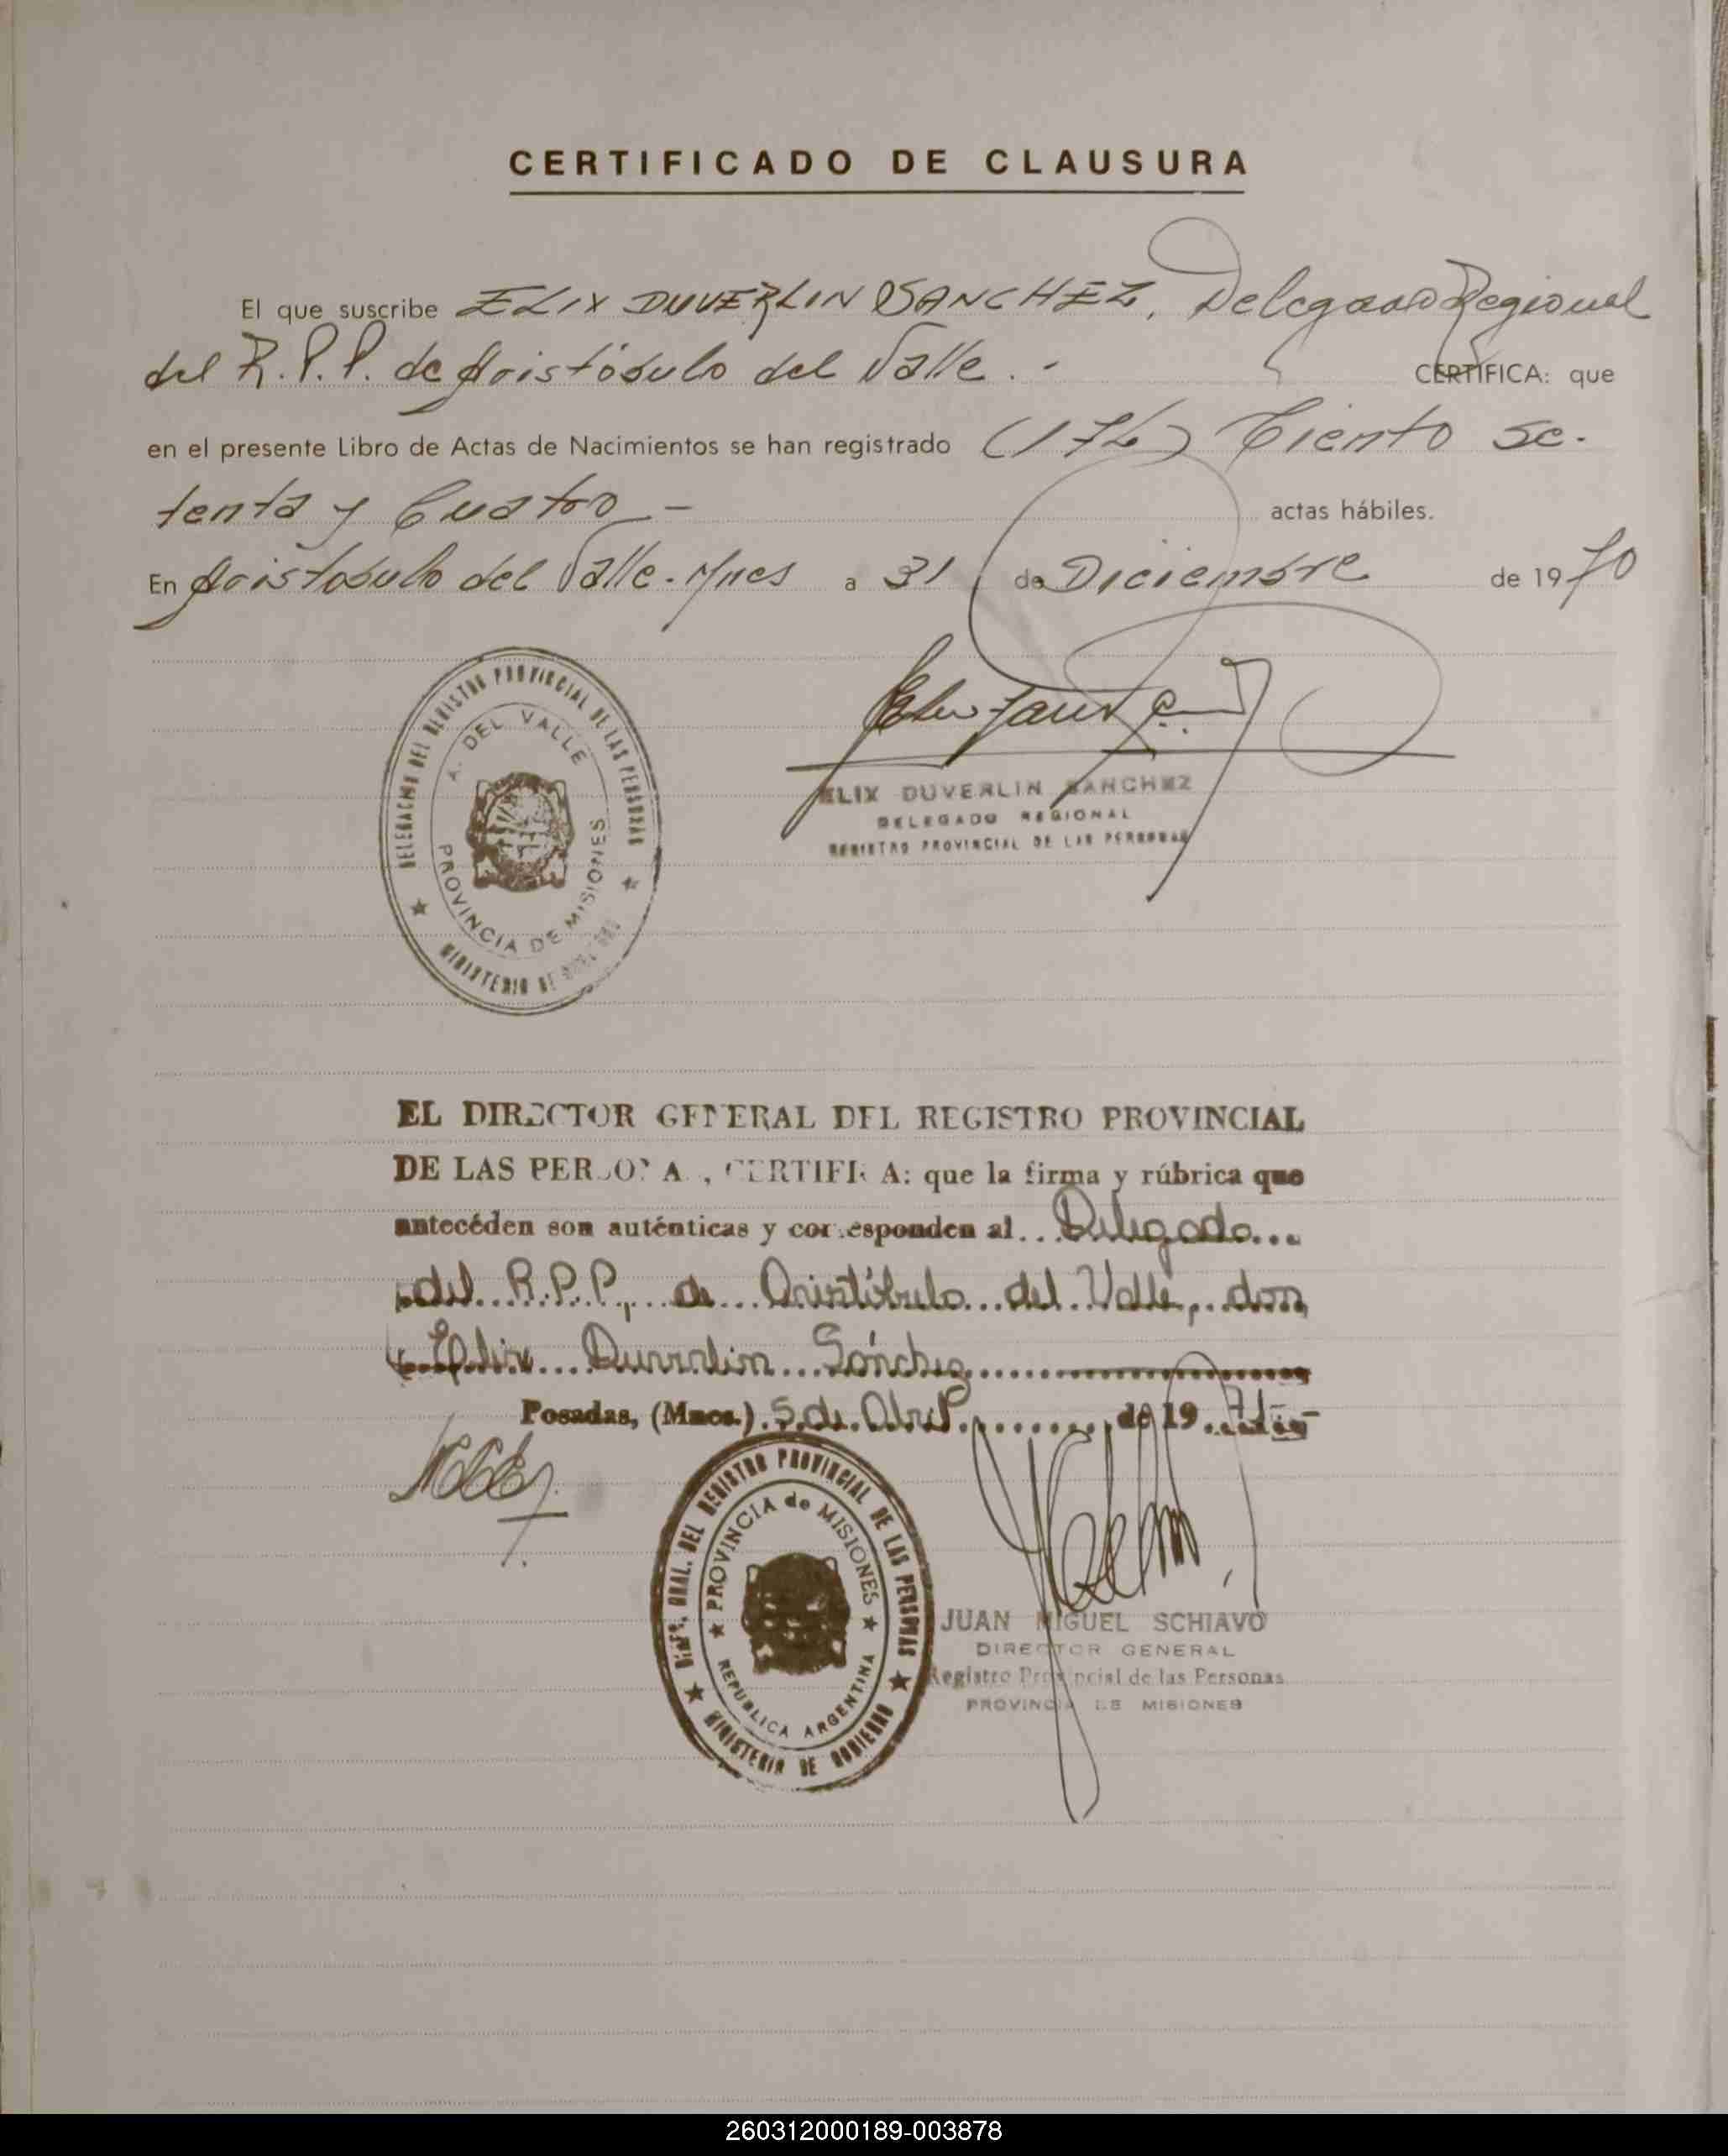 CERTIFICADO DE CLAUSURA
El que suscribe ELIX DUVERLIN SANCHEZ, Delegado Regional
del R.P.P. de Aristóbulo del Valle.- CERTIFICA: que
en el presente Libro de Actas de Nacimientos se han registrado (174) Ciento se-
tenta y Cuatro - actas hábiles.
En Aristobulo del Valle-Mnes a 31 de Diciembre de 1970
DELEGACION DEL REGISTRO PROVINCIAL DE LAS PERSONAS
A. DEL VALLE
PROVINCIA DE MISIONES
MINISTERIO DE
ELIX DUVERLIN SANCHEZ
DELEGADO REGIONAL
REGISTRO PROVINCIAL DE LAS PERSONAS
EL DIRECTOR GENERAL DEL REGISTRO PROVINCIAL
DE LAS PERSONAS, CERTIFICA: que la firma y rúbrica que
antecéden son auténticas y corresponden al Delegado
del R.P.P., de Aristóbulo del Valle, don
Elix Duverlin Sánchez
Posadas, (Mnes.) 5 de Abril de 19 71.-
DIRE. GRAL. DEL REGISTRO PROVINCIAL DE LAS PERSONAS
PROVINCIA de MISIONES
REPUBLICA ARGENTINA
MINISTERIO DE GOBIERNO
JUAN MIGUEL SCHIAVO
DIRECTOR GENERAL
Registro Provincial de las Personas
PROVINCIA DE MISIONES
260312000189-003878